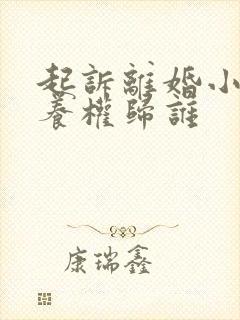 起訴離婚小
養權歸誰
康瑞鑫